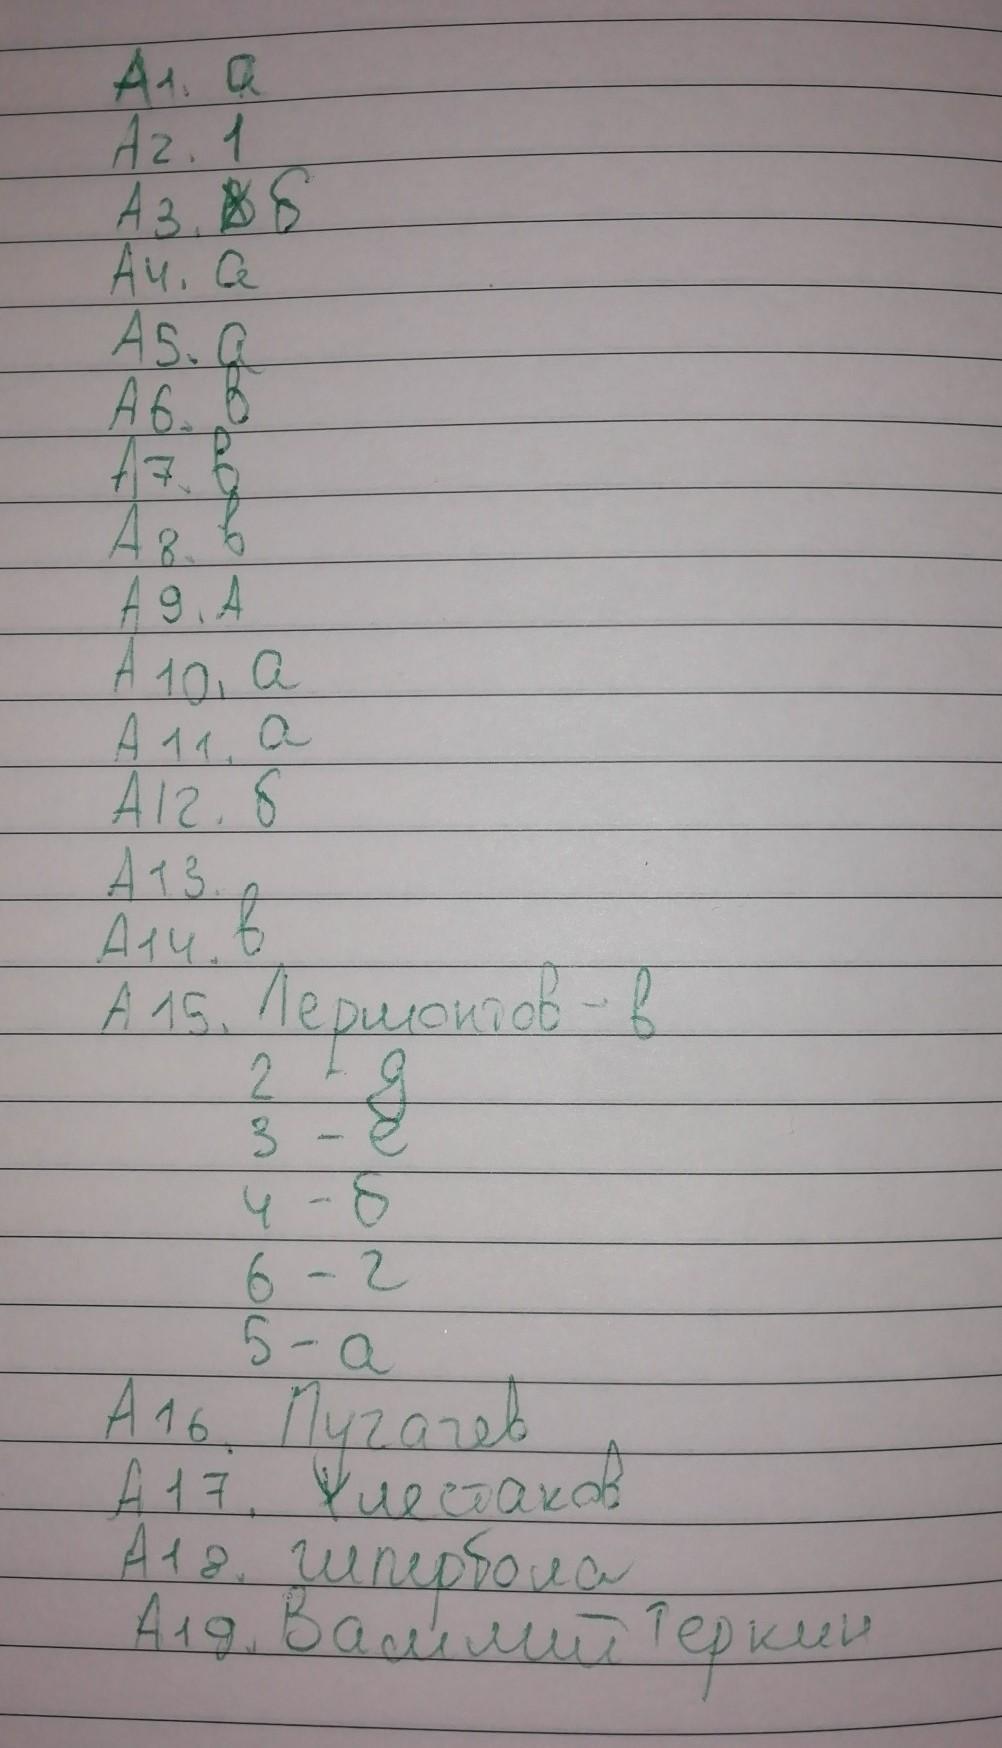 А1. а
А2. 1
А3. б
А4. а
А5. а
А6. в
А7. в
А8. в
А9. А
А10. а
А11. а
А12. б
А13.
А14. в
А15. Лермонтов - в
2 - д
3 - е
4 - б
6 - г
5 - а
А16. Пугачев
А17. Хлестаков
А18. гипербола
А19. Теркин